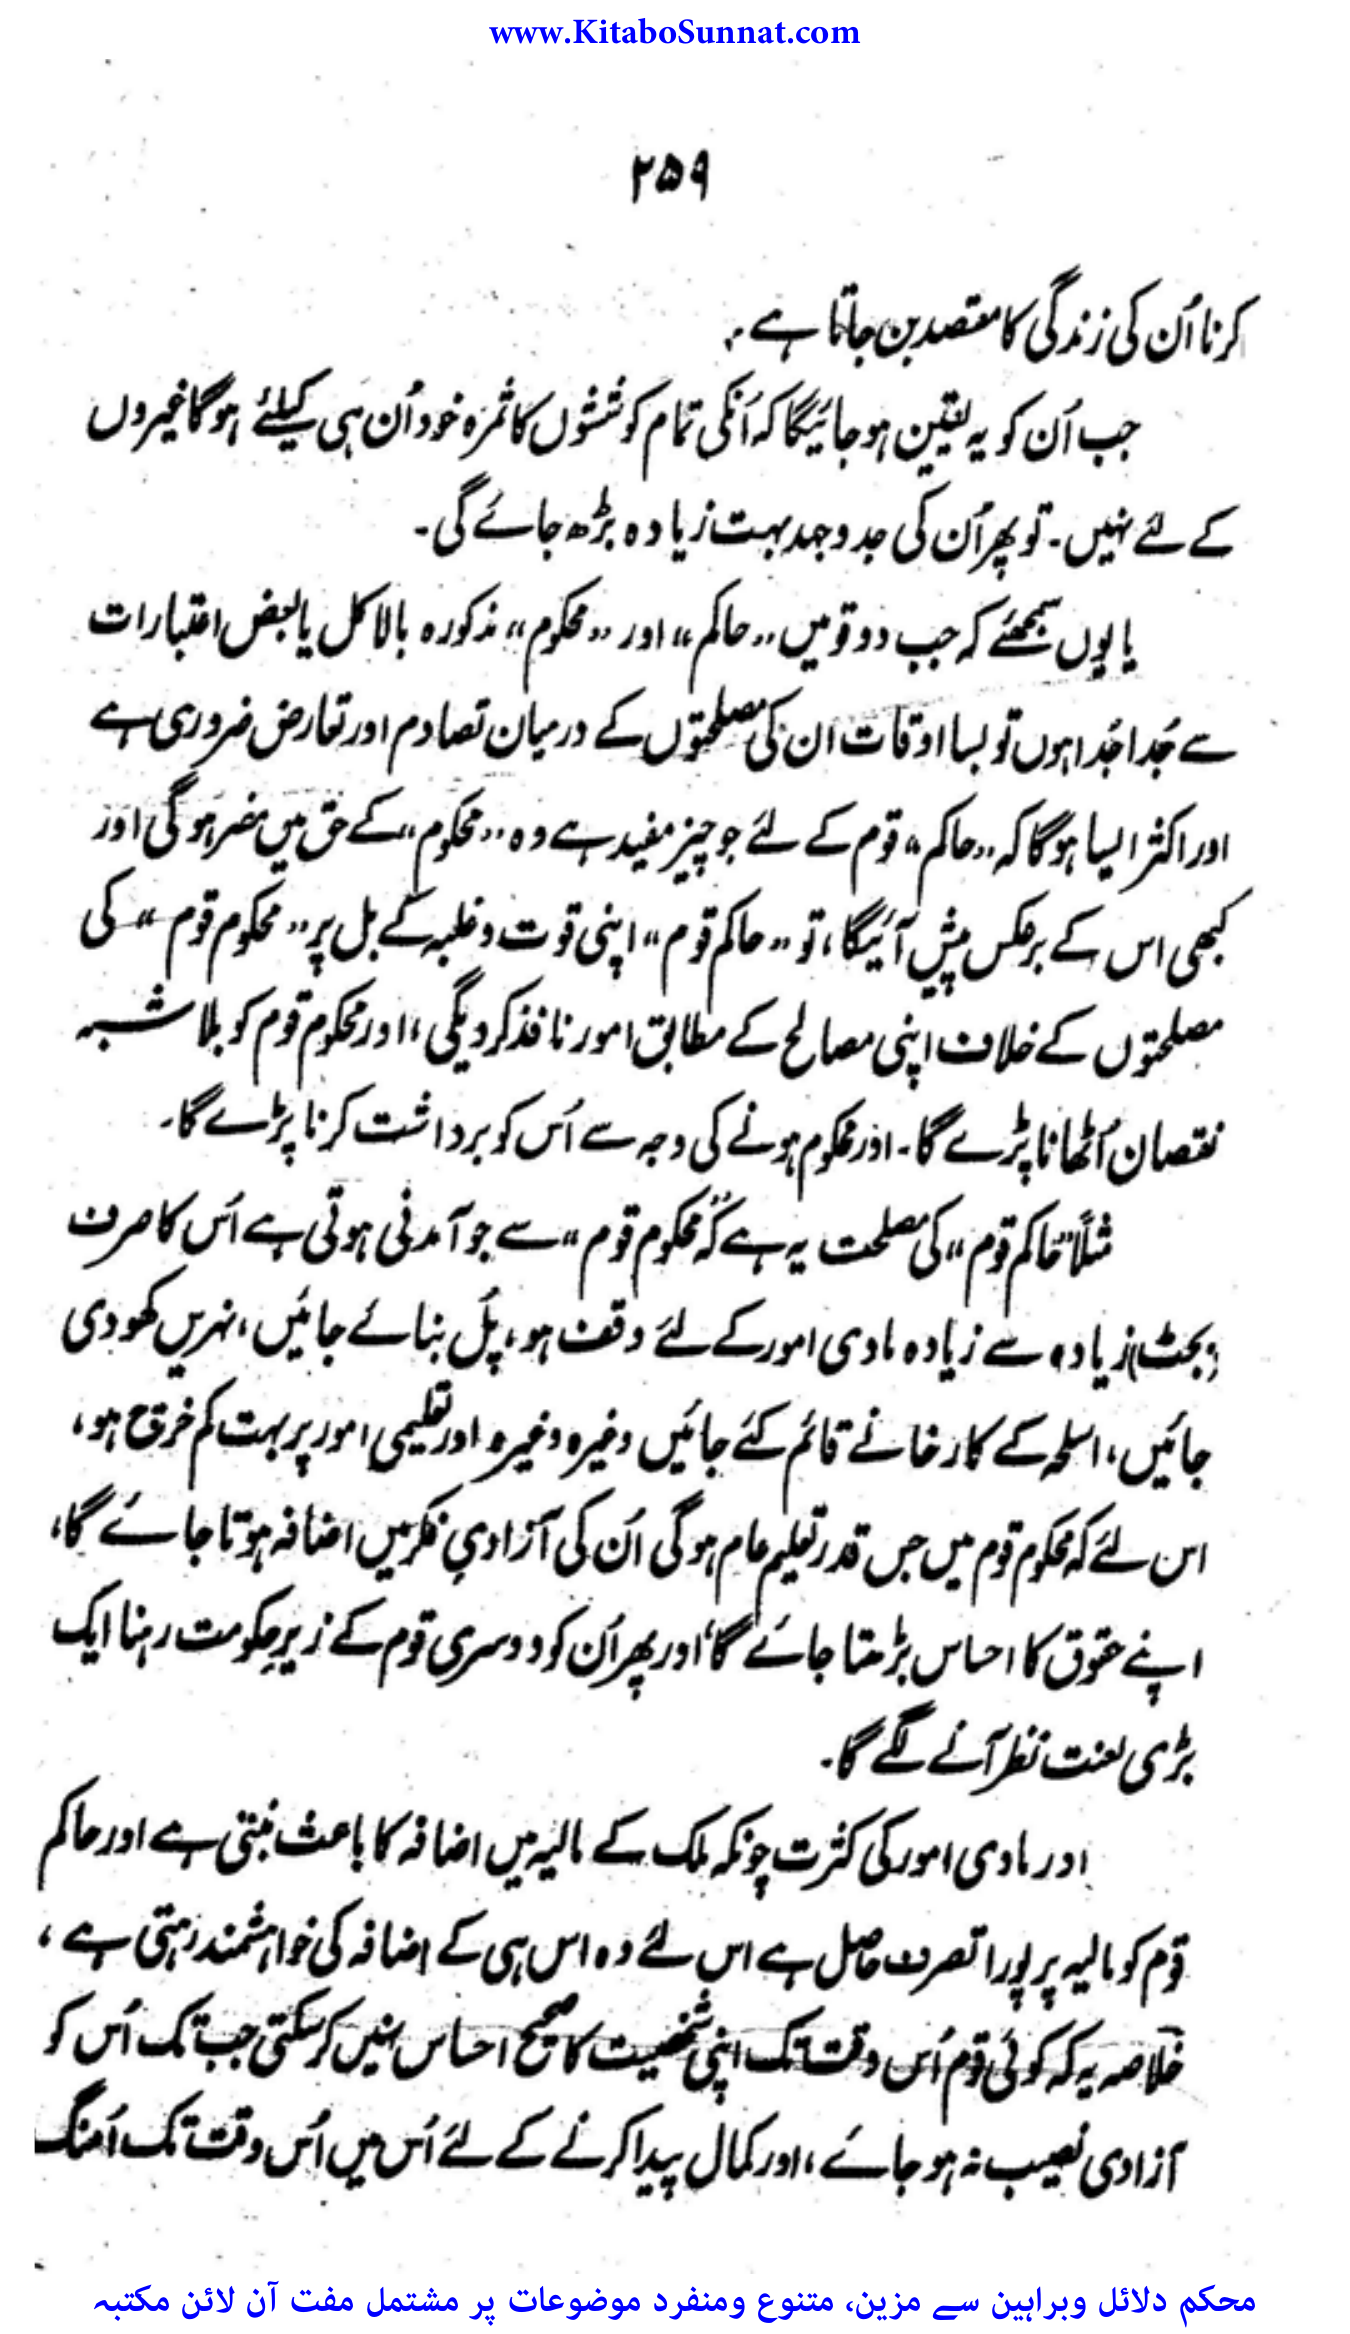 www.KitaboSunnat.com
۲۵۹
کرنا اُن کی زندگی کا مقصد بن جاتا ہے.
جب اُن کو یہ یقین ہو جائیگا کہ اُنکی تمام کوششوں کا ثمرہ خود اُن ہی کیلئے ہو گا غیروں
کے لئے نہیں۔ تو پھر اُن کی جد و جہد بہت زیادہ بڑھ جائے گی۔
یا یوں سمجھئے کہ جب دو قومیں ،،حاکم،، اور ،،محکوم،، مذکورہ بالا کل یا بعض اعتبارات
سے جُدا جُدا ہوں تو بسا اوقات ان کی مصلحتوں کے درمیان تصادم اور تعارض ضروری ہے
اور اکثر ایسا ہو گا کہ ،،حاکم،، قوم کے لئے جو چیز مفید ہے وہ ،،محکوم،، کے حق میں مضر ہو گی اور
کبھی اس کے برعکس پیش آئیگا، تو ،،حاکم قوم،، اپنی قوت و غلبہ کے بل پر ،،محکوم قوم،، کی
مصلحتوں کے خلاف اپنی مصالح کے مطابق امور نافذ کر دیگی، اور محکوم قوم کو بلا شبہ
نقصان اُٹھانا پڑے گا۔ اور محکوم ہونے کی وجہ سے اُس کو برداشت کرنا پڑے گا۔
مثلًا "حاکم قوم،، کی مصلحت یہ ہے کہ "محکوم قوم،، سے جو آمدنی ہوتی ہے اُس کا صرف
(بجٹ) زیادہ سے زیادہ مادی امور کے لئے وقف ہو، پُل بنائے جائیں، نہریں کھودی
جائیں، اسلحہ کے کارخانے قائم کئے جائیں وغیرہ وغیرہ اور تعلیمی امور پر بہت کم خرچ ہو،
اس لئے کہ محکوم قوم میں جس قدر تعلیم عام ہو گی اُن کی آزادیِ فکر میں اضافہ ہوتا جائے گا،
اپنے حقوق کا احساس بڑھتا جائے گا، اور پھر اُن کو دوسری قوم کے زیرِ حکومت رہنا ایک
بڑی لعنت نظر آنے لگے گا۔
اور مادی امور کی کثرت چونکہ ملک کے مالیہ میں اضافہ کا باعث بنتی ہے اور حاکم
قوم کو مالیہ پر پورا تصرف حاصل ہے اس لئے وہ اس ہی کے اضافہ کی خواہشمند رہتی ہے،
خلاصہ یہ کہ کوئی قوم اُس وقت تک اپنی شخصیت کا صحیح احساس نہیں کر سکتی جب تک اُس کو
آزادی نصیب نہ ہو جائے، اور کمال پیدا کرنے کے لئے اُس میں اُس وقت تک اُمنگ
محکم دلائل وبراہین سے مزین، متنوع ومنفرد موضوعات پر مشتمل مفت آن لائن مکتبہ